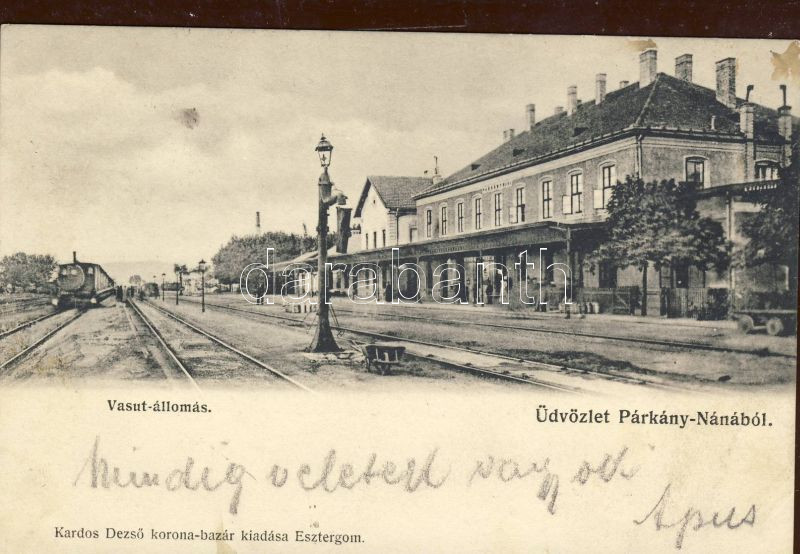 darabanth
Vasut-állomás.
Üdvözlet Párkány-Nánából.
Mindig veleted vagyok
Apus
Kardos Dezső korona-bazár kiadása Esztergom.